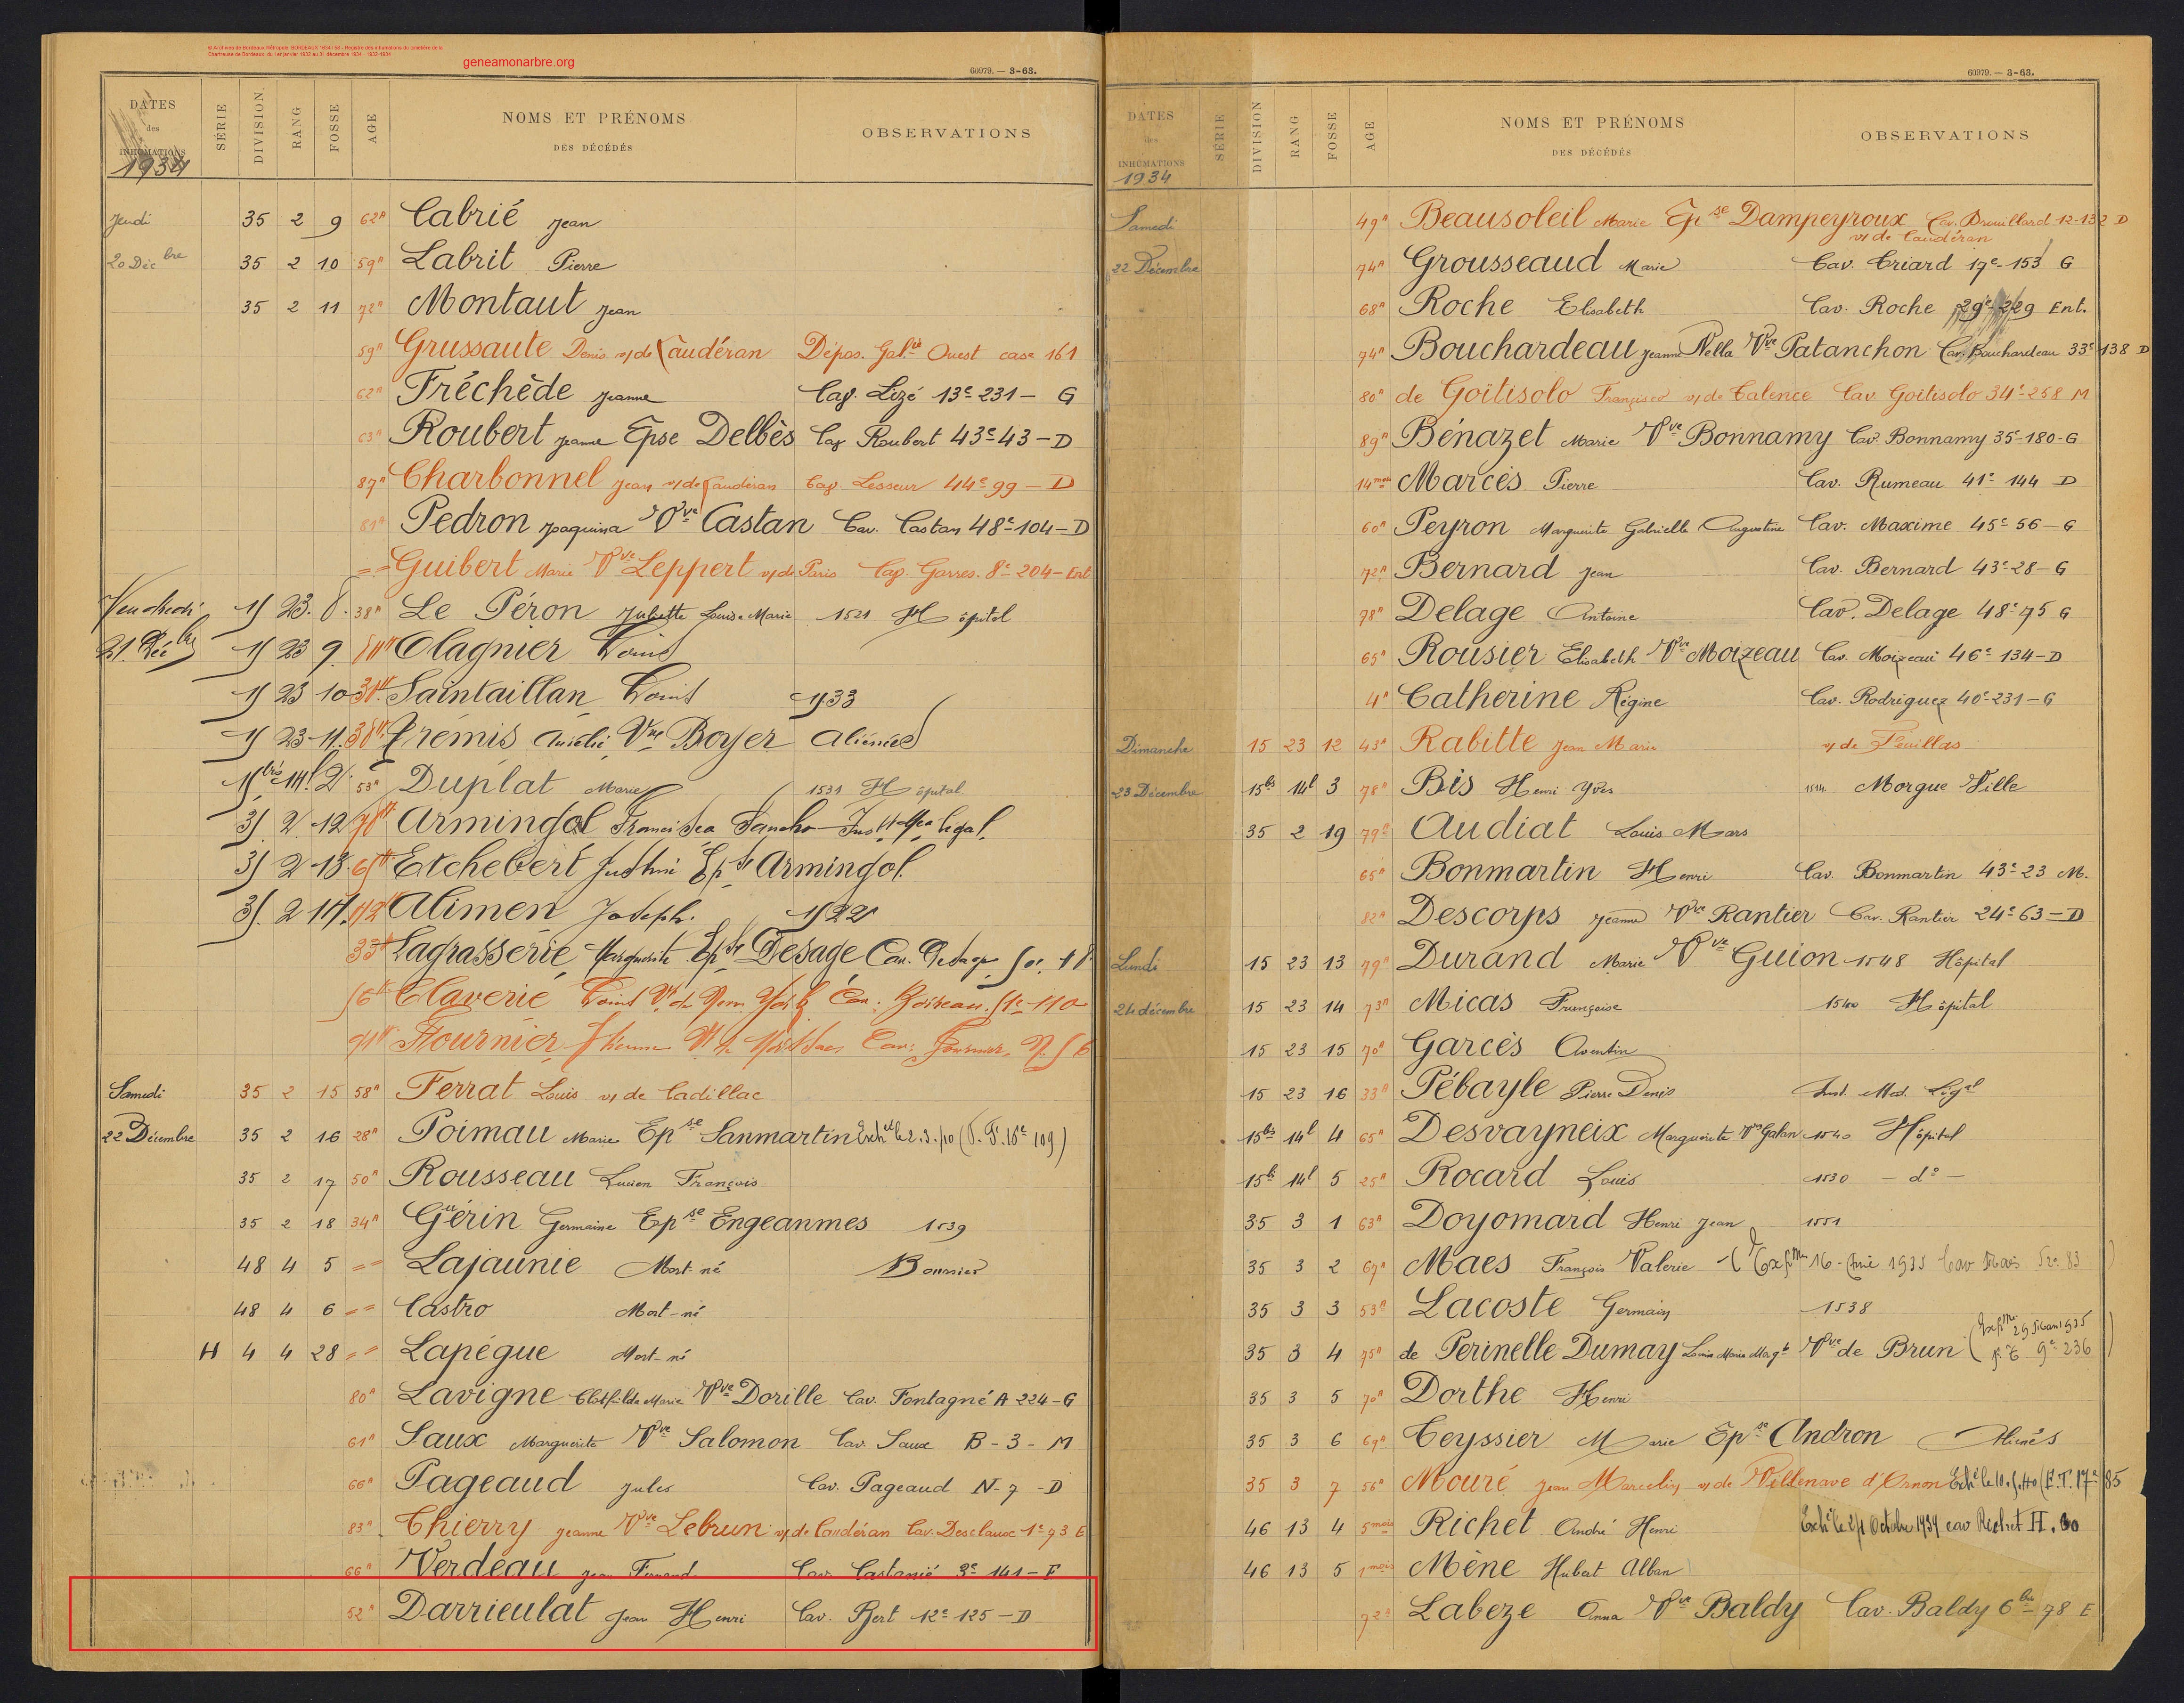 © Archives de Bordeaux Métropole, BORDEAUX 1604 I 59 - Registre des inhumations du cimetière de la
Chartreuse de Bordeaux, du 1er janvier 1932 au 31 décembre 1934 - 1932-1934
geneamonarbre.org
60979. — 3-63.
DATES des INHUMATIONS SÉRIE DIVISION RANG FOSSE AGE NOMS ET PRÉNOMS DES DÉCÉDÉS OBSERVATIONS
1934
Jeudi 35 2 9 62a Cabrié Jean
20 Décbre 35 2 10 59a Labrit Pierre
35 2 11 72a Montaut Jean
59a Grussaute Denis v/de Caudéran Dépos. Galie Ouest case 161
62a Fréchède Jeanne Cav. Lizé 13e 231 — G
63a Roubert Jeanne Epse Delbès Cav Roubert 43e 43 — D
87a Charbonnel Jean v/de Caudéran Cav. Lesseur 44e 99 — D
81a Pedron Joaquina Vve Castan Cav. Castan 48e 104 — D
Guibert Marie Vve Leppert v/de Paris Cav. Garres. 8e 204 — Ent
Vendredi 15 23. 8. 38a Le Péron Juliette Louise Marie 1521 Hôpital
21 Déc 15 23 9. Olagnier Louis
15 23 10 Saintaillan Louis 1533
15 23 11. Frémis Amélie Vve Boyer Aliénées
15bis 14l 2 53a Duplat Marie 1531 Hôpital
35 2 12 Armingol Francisca Sancho Inst Méd légal.
35 2 13. 65a Etchebert Justine Epse Armingol.
35. 2 14. 42a Alimen Joseph. 1522
33a Lagrasserie Marguerite Epse Desage Cav. Desage
56a Claverie Louis
Fournier Cav: Fournier
Samedi 35 2 15 58a Ferrat Louis v/ de Cadillac
22 Décembre 35 2 16 28a Poimau Marie Epse Sanmartin
35 2 17 50a Rousseau Lucien François
35 2 18 34a Guérin Germaine Epse Engeanmes 1539
48 4 5 Lajaunie Mort-né Boursier
48 4 6 Castro Mort-né
H 4 4 28 Lapégue Mort-né
80a Lavigne Clothilde Marie Vve Dorille Cav. Fontagné A 224 - G
61a Saux Marguerite Vve Salomon Cav. Saux B - 3 - M
66a Pageaud Jules Cav. Pageaud N - 7 - D
83a Thierry Jeanne Vve Lebrun v/de Caudéran Cav. Desclaux 1e 93 E
66a Verdeau Jean Fernand Cav. Castanié 3e 141 — E
52a Darrieulat Jean Henri Cav. Bert 12e 125 — D
60979. — 3-63.
DATES des INHUMATIONS SÉRIE DIVISION RANG FOSSE AGE NOMS ET PRÉNOMS DES DÉCÉDÉS OBSERVATIONS
1934
Samedi 49a Beausoleil Marie Epse Dampeyroux Cav. Drouillard 12-132 D
v/ de Caudéran
22 Décembre 74a Grousseaud Marie Cav. Criard 17e - 153 G
68a Roche Elisabeth Cav. Roche 29e 229 Ent.
74a Bouchardeau Jeanne Nella Vve Patanchon Cav. Bouchardeau 33e 138 D
80a de Goïtisolo Francisco v/de Talence Cav. Goïtisolo 34e 258 M
89a Bénazet Marie Vve Bonnamy Cav. Bonnamy 35e - 180 - G
14mois Marcès Pierre Cav. Rumeau 41e 144 D
60a Peyron Marguerite Gabrielle Augustine Cav. Maxime 45e 56 — G
72a Bernard Jean Cav. Bernard 43e - 28 - G
78a Delage Antoine Cav. Delage 48e 75 G
65a Rousier Elisabeth Vve Moizeau Cav. Moizeau 46e 134 - D
4a Catherine Régine Cav. Rodriguez 40e - 231 - G
Dimanche 15 23 12 43a Rabitte Jean Marie v/ de Feuillas
23 Décembre 15bis 14l 3 78a Bis Henri Yves 1514 Morgue Ville
35 2 19 79a Audiat Louis Mars
65a Bonmartin Henri Cav. Bonmartin 43e 23 M.
82a Descorps Jeanne Vve Rantier Cav. Rantier 24e 63 — D
Lundi 15 23 13 79a Durand Marie Vve Guion 1548 Hôpital
24 décembre 15 23 14 73a Micas Françoise 1540 Hôpital
15 23 15 70a Garcès Aventin
15 23 16 33a Pébayle Pierre Denis Inst. Med. Légal
15bis 14l 4 65a Desvayneix Marguerite Vve Galan 1540 Hôpital
15b 14l 5 25a Rocard Louis 1530 — do —
35 3 1 63a Doyomard Henri Jean 1551
35 3 2 67a Maes François Valerie 1935 Cav Maes 52e 83
35 3 3 53a Lacoste Germain 1538
35 3 4 75a de Perinelle Dumay Louise Marie Magte Vve de Brun 9e 236
35 3 5 70a Dorthe Henri
35 3 6 69a Teyssier Marie Epse Andron Aliénés
35 3 7 56a Mouré Jean Marcelin v/ de Villenave d'Ornon
46 13 4 5mois Richet André Henri Octobre cav Richet H. 30
46 13 5 1mois Mène Hubert Alban
72a Labeze Anna Vve Baldy Cav. Baldy 6bis 78 E